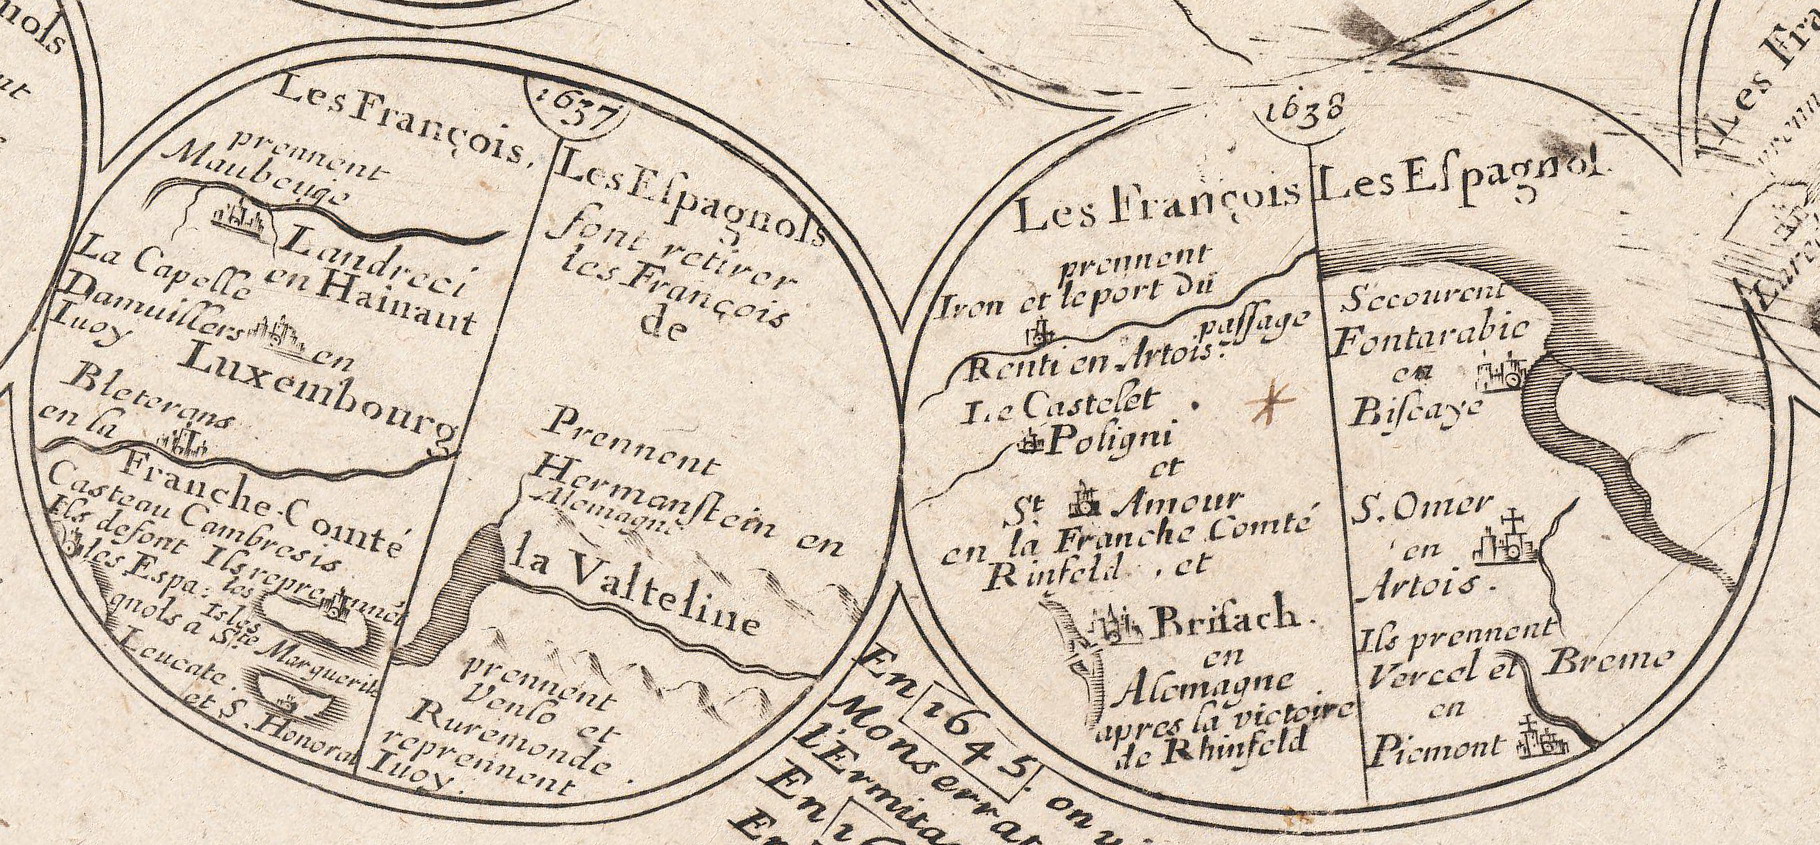 1637
Les François.
prennent
Maubeuge
Landreci
en Hainaut
La Capelle
Damuillers
Iuoy
en
Luxembourg
Bleterans
en la
Franche-Comté
Casteau Cambresis
Ils defont
les Espa:
gnols à
Leucate.
Ils reprennēt
les
Isles
Ste Marguerite
et S. Honorat
Les Eſpagnols
font retirer
les François
de
la Valteline
Prennent
Hermanſtein en
Alemagne
prennent
Venlo et
Ruremonde.
reprennent
Iuoy.
1638
Les François
prennent
Iron et le port du
paſſage
Renti en Artois.
Le Castelet
Poligni
et
St Amour
en la Franche Comté
Rinfeld, et
Briſach.
en
Alemagne
apres la victoire
de Rhinfeld
Les Eſpagnol.
Secourent
Fontarabie
en
Biſcaye
S. Omer
en
Artois.
Ils prennent
Vercel et Breme
en
Piemont
En 1645. on y
Monserrat
L'Ermita
En
En
nols
Les Fra